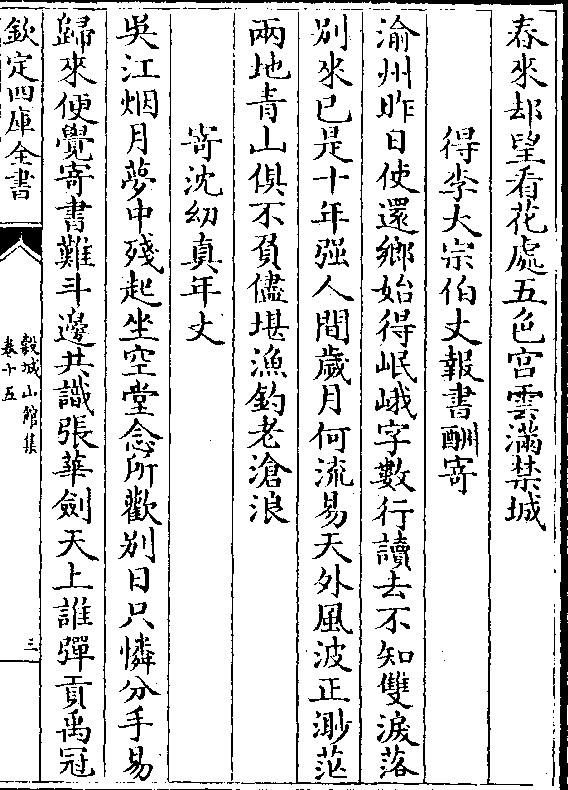 春來却望看花處五色宫雲滿禁城
得李大宗伯丈報書酬寄
渝州昨日使還鄉始得岷峨字數行讀去不知雙淚落
别來已是十年强人間歲月何流易天外風波正渺茫
兩地青山俱不負儘堪漁釣老滄浪
寄沈幼真年丈
吳江烟月夢中殘起坐空堂念所歡别日只憐分手易
歸來便覺寄書難斗邊共識張華劍天上誰彈貢禹冠
欽定四庫全書
榖城山館集
卷十五
三